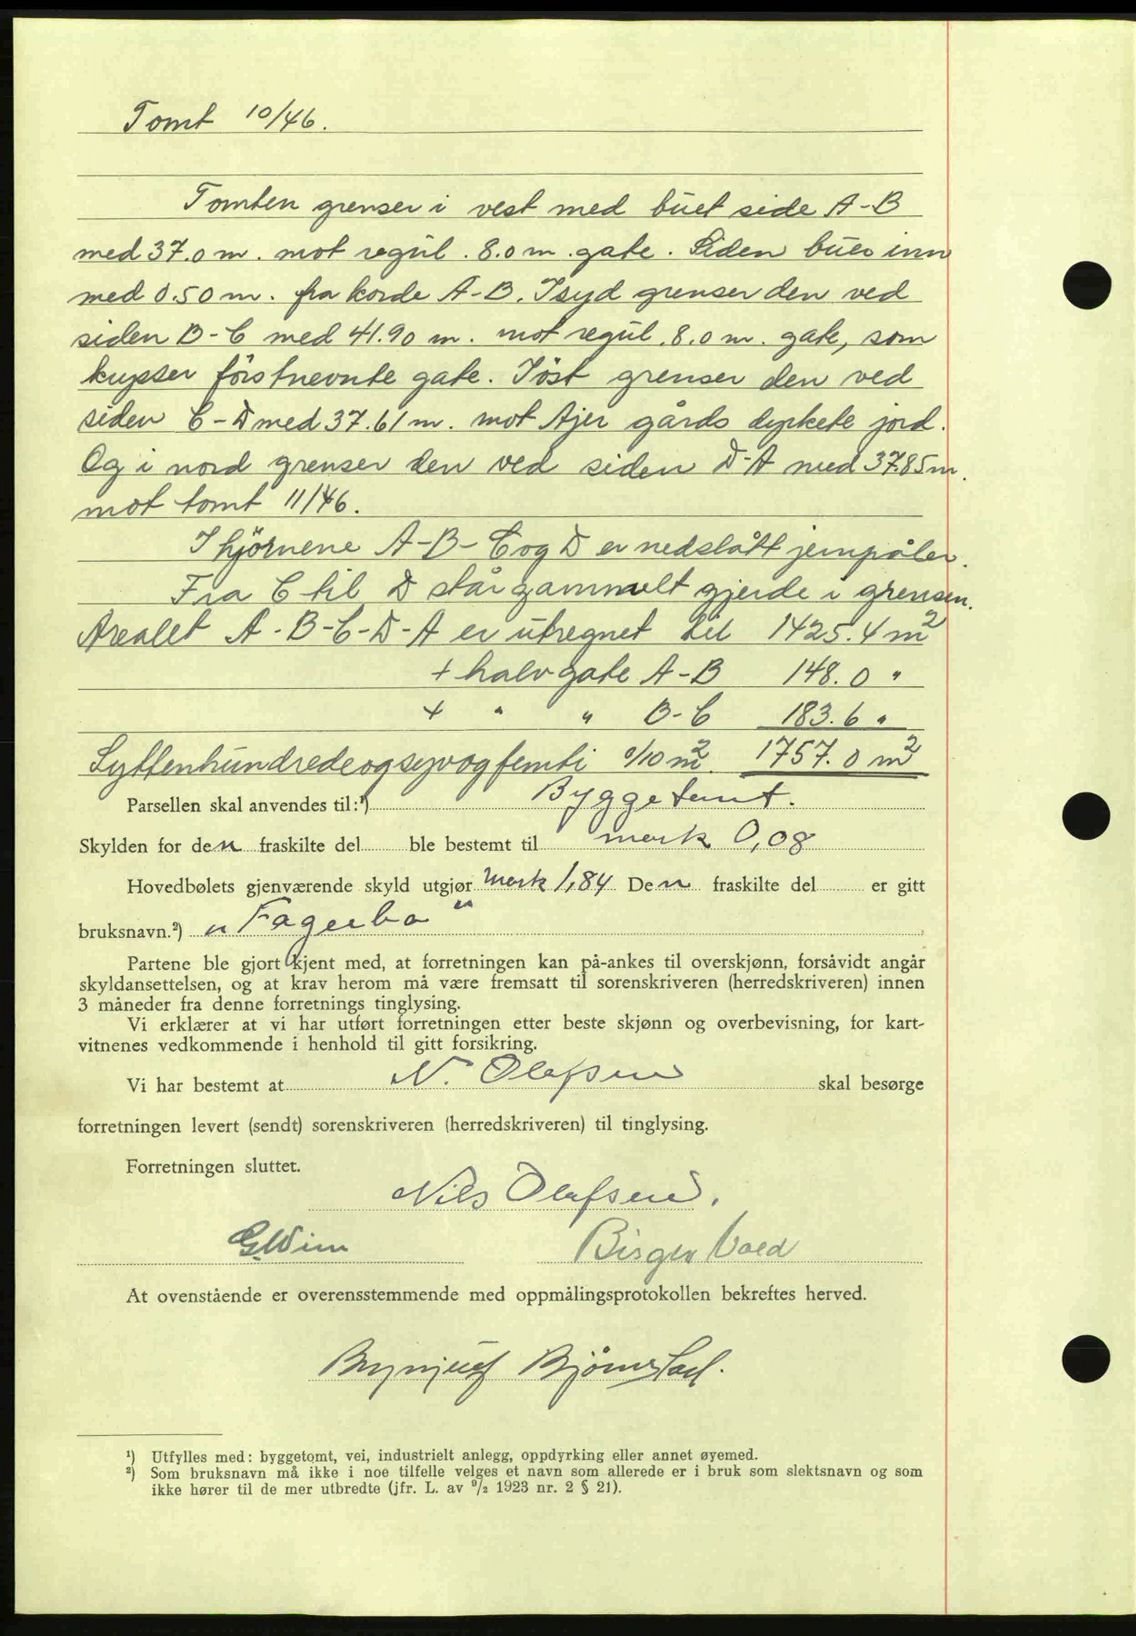 Tomt 10/46.
Tomten grenser i vest med buet side A-B
med 37.0 m. mot regul. 8.0 m. gate. Siden bues inn
med 0.50 m. fra korde A-B. I syd grenser den ved
siden B-C med 41.90 m. mot regul. 8.0 m. gate, som
krysser förstnevnte gate. I öst grenser den ved
siden C-D med 37.61 m. mot Ajer gårds dyrkete jord.
Og i nord grenser den ved siden D-A med 37.85 m.
mot tomt 11/46.
I hjörnene A-B-C og D er nedslått jernpåler.
Fra C til D står gammelt gjerde i grensen.
Arealet A-B-C-D-A er utregnet til 1425.4 m²
+ halv gate A-B 148.0 "
+ " " B-C 183.6 "
Syttenhundredeogsyvogfemti 0/10 m². 1757.0 m²
Parsellen skal anvendes til:¹) Byggetomt.
Skylden for den fraskilte del ble bestemt til mark 0,08
Hovedbølets gjenværende skyld utgjør Mark 1,84 Den fraskilte del er gitt
bruksnavn.²) "Fagerbo"
Partene ble gjort kjent med, at forretningen kan på-ankes til overskjønn, forsåvidt angår
skyldansettelsen, og at krav herom må være fremsatt til sorenskriveren (herredskriveren) innen
3 måneder fra denne forretnings tinglysing.
Vi erklærer at vi har utført forretningen etter beste skjønn og overbevisning, for kart-
vitnenes vedkommende i henhold til gitt forsikring.
Vi har bestemt at N. Olafsen skal besørge
forretningen levert (sendt) sorenskriveren (herredskriveren) til tinglysing.
Forretningen sluttet.
Nils Olafsen.
G. Wiin Birger Vold
At ovenstående er overensstemmende med oppmålingsprotokollen bekreftes herved.
Brynjulf Bjørnstad.
¹) Utfylles med: byggetomt, vei, industrielt anlegg, oppdyrking eller annet øyemed.
²) Som bruksnavn må ikke i noe tilfelle velges et navn som allerede er i bruk som slektsnavn og som
ikke hører til de mer utbredte (jfr. L. av 9/2 1923 nr. 2 § 21).